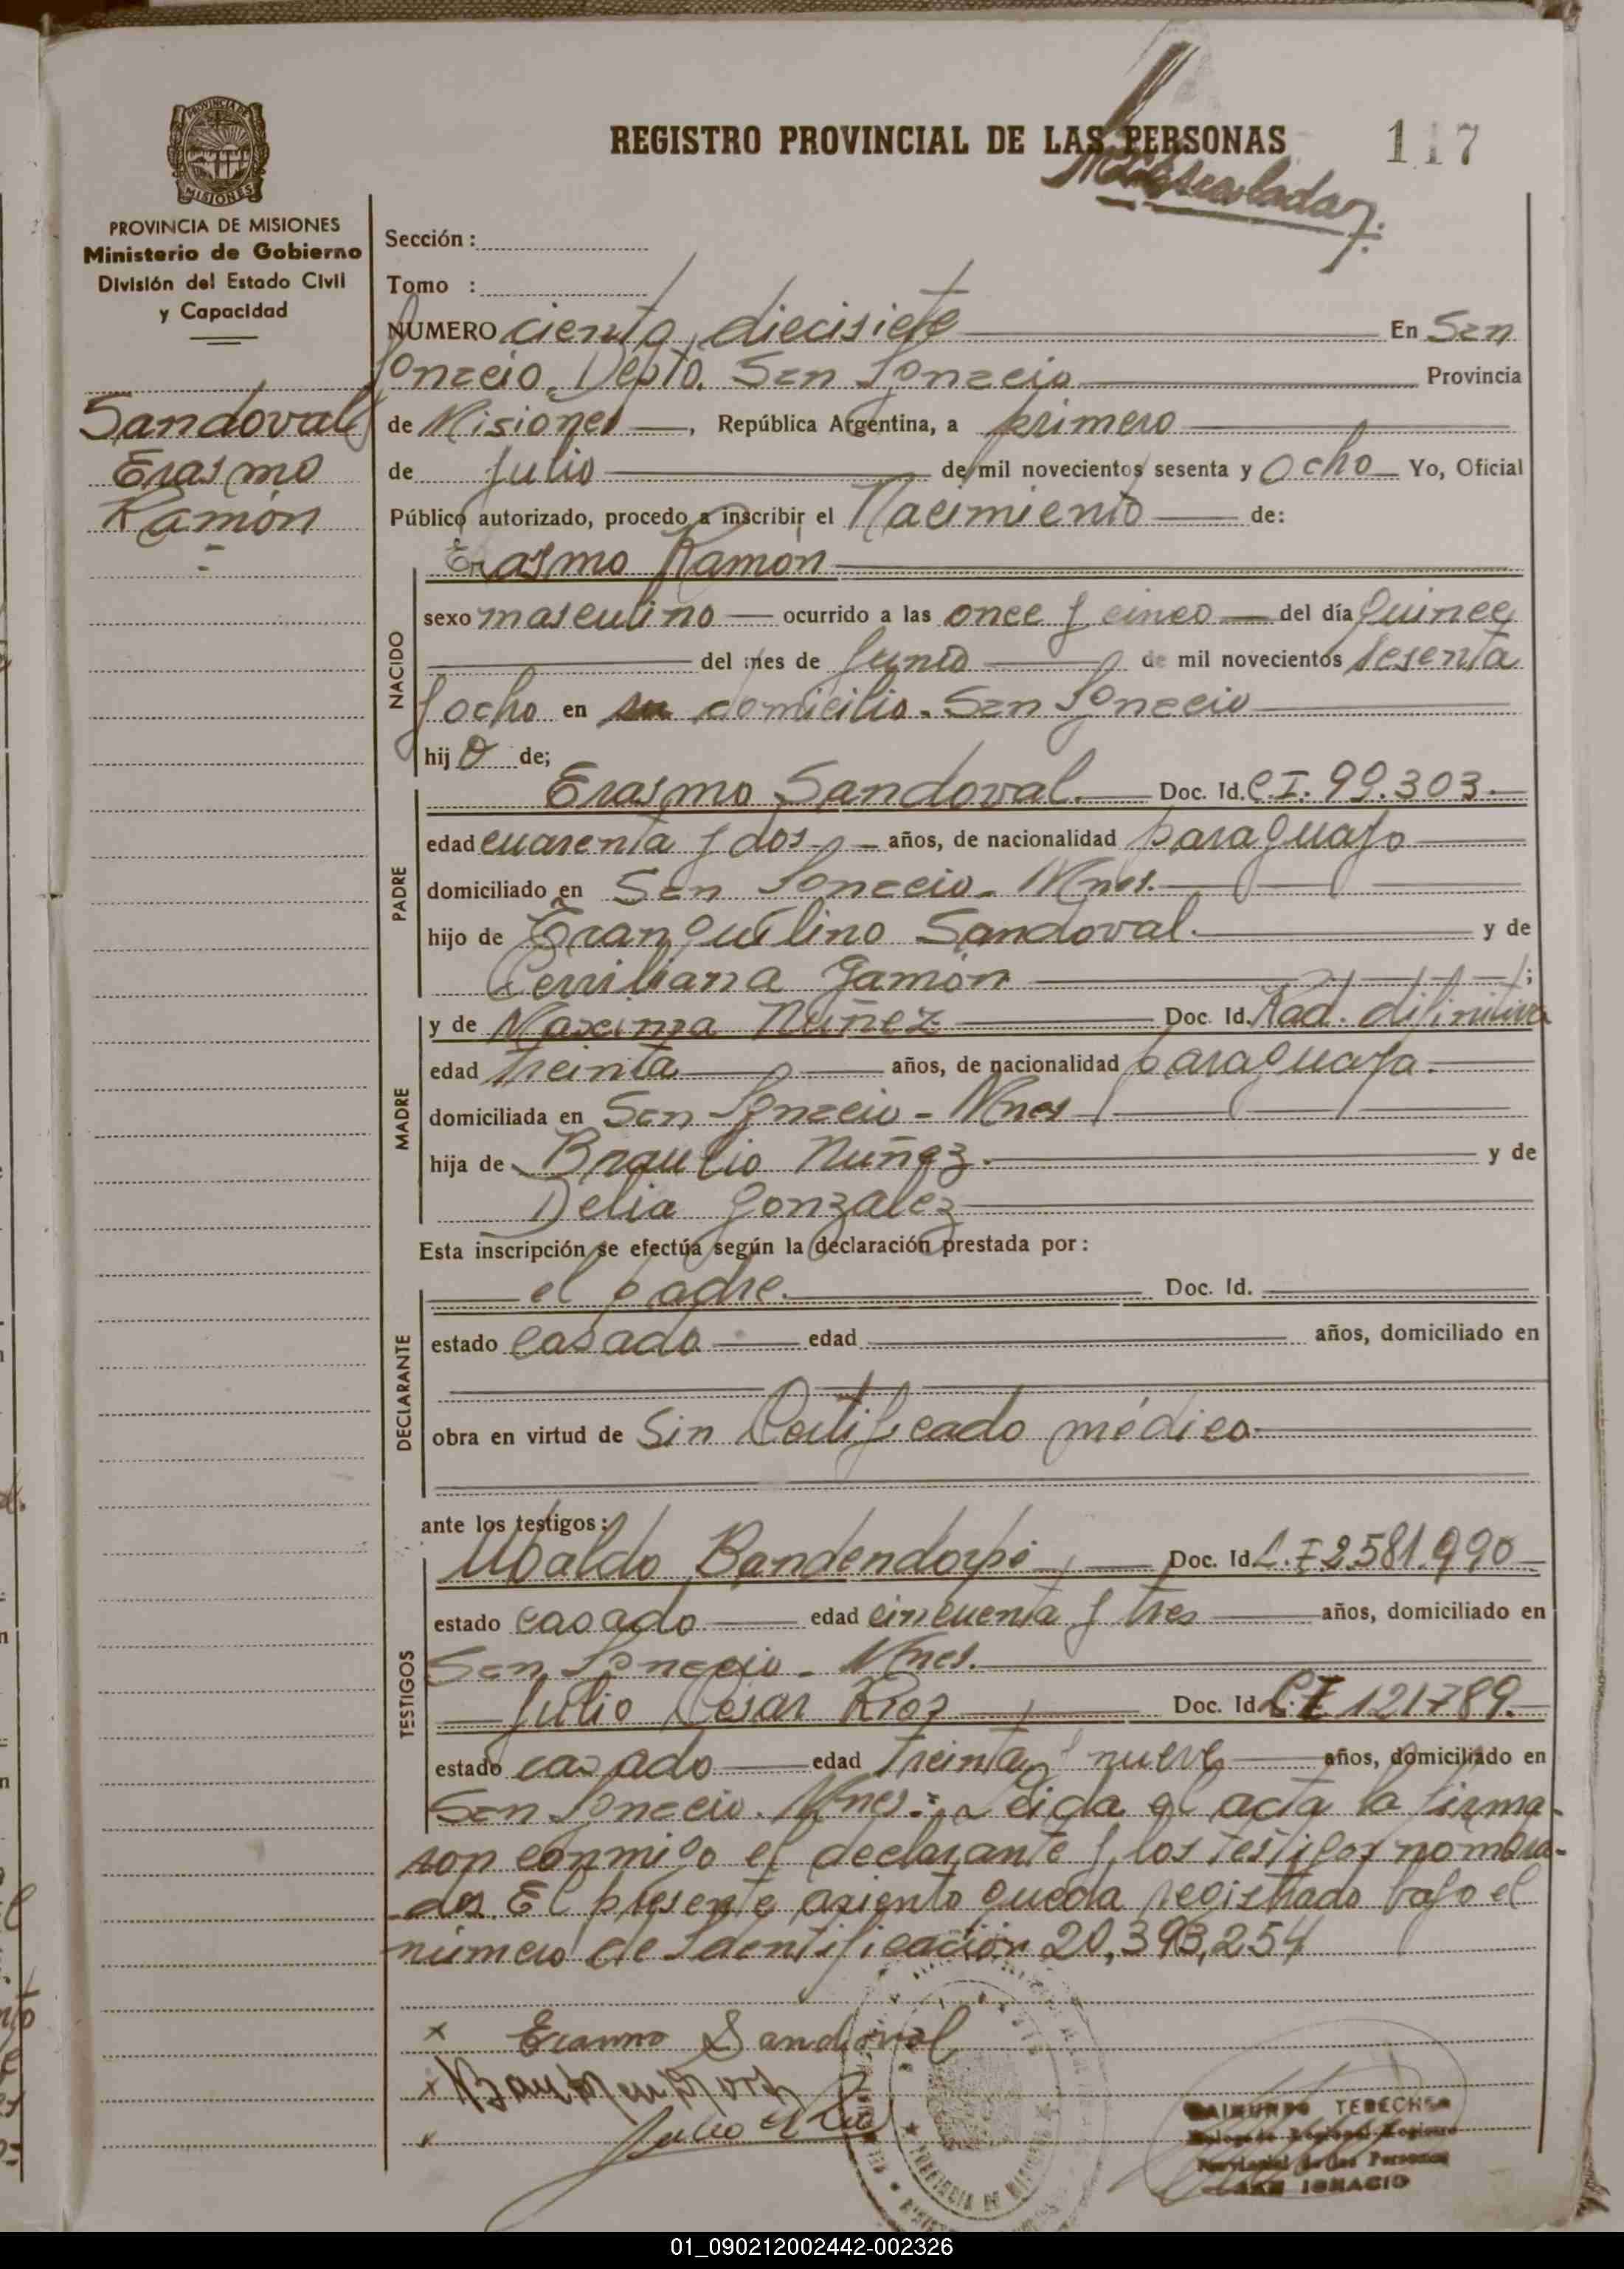 PROVINCIA DE
MISIONES
PROVINCIA DE MISIONES
Ministerio de Gobierno
División del Estado Civil
y Capacidad
Sandoval
Erasmo
Ramón
REGISTRO PROVINCIAL DE LAS PERSONAS 117
Sección :
Tomo :
NUMERO ciento diecisiete En San
Ignacio. Depto. San Ignacio Provincia
de Misiones, República Argentina, a primero
de Julio de mil novecientos sesenta y ocho Yo, Oficial
Público autorizado, procedo a inscribir el Nacimiento de:
Erasmo Ramon
NACIDO
sexo masculino ocurrido a las once y cinco del día quince
del mes de Junio de mil novecientos sesenta
y ocho en su domicilio. San Ignacio
hijo de;
PADRE
Erasmo Sandoval. Doc. Id. C.I. 99.303
edad cuarenta y dos años, de nacionalidad paraguayo
domiciliado en San Ignacio - Mnes.
hijo de Tranquilino Sandoval. y de
Gamón ;
MADRE
y de Maxima Nuñez Doc. Id. Rad. difinitiva
edad treinta años, de nacionalidad paraguaya.
domiciliada en San Ignacio - Mnes
hija de Braulio Nuñez. y de
Delia Gonzalez
Esta inscripción se efectúa según la declaración prestada por :
DECLARANTE
el padre. Doc. Id.
estado casado edad años, domiciliado en
obra en virtud de Sin Certificado médico
ante los testigos :
TESTIGOS
Ubaldo Doc. Id. 2581.990
estado casado edad cincuenta y tres años, domiciliado en
San Ignacio - Mnes.
Julio Cesar Doc. Id. C.I. 121789.
estado casado edad treinta y nueve años, domiciliado en
San Ignacio. Mnes: Leida el acta la firma-
ron conmigo el declarante y los testigos nombra-
dos. El presente asiento queda registrado bajo el
número de Identificación 20,393,254
x Erasmo Sandoval
x
PROVINCIA DE MISIONES
RAIMUNDO
Delegado Regional Registro
Provincial de las Personas
SAN IGNACIO
01_090212002442-002326